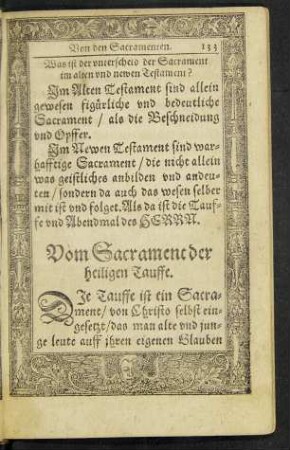 Von den Sacramenten. 133
Was ist der vnterscheid der Sacrament
im alten vnd newen Testament?
Im Alten Testament sind allein
gewesen figürliche vnd bedeutliche
Sacrament / als die Beschneidung
vnd Opffer.
Im Newen Testament sind war-
hafftige Sacrament / die nicht allein
was geistliches anbilden vnd andeu-
ten / sondern da auch das wesen selber
mit ist vnd folget. Als da ist die Tauf-
fe vnd Abendmal des HERRN.
Vom Sacrament der
heiligen Tauffe.
DIe Tauffe ist ein Sacra-
ment / von Christo selbst ein-
gesetzt / das man alte vnd jun-
ge leute auff jhren eigenen Glauben